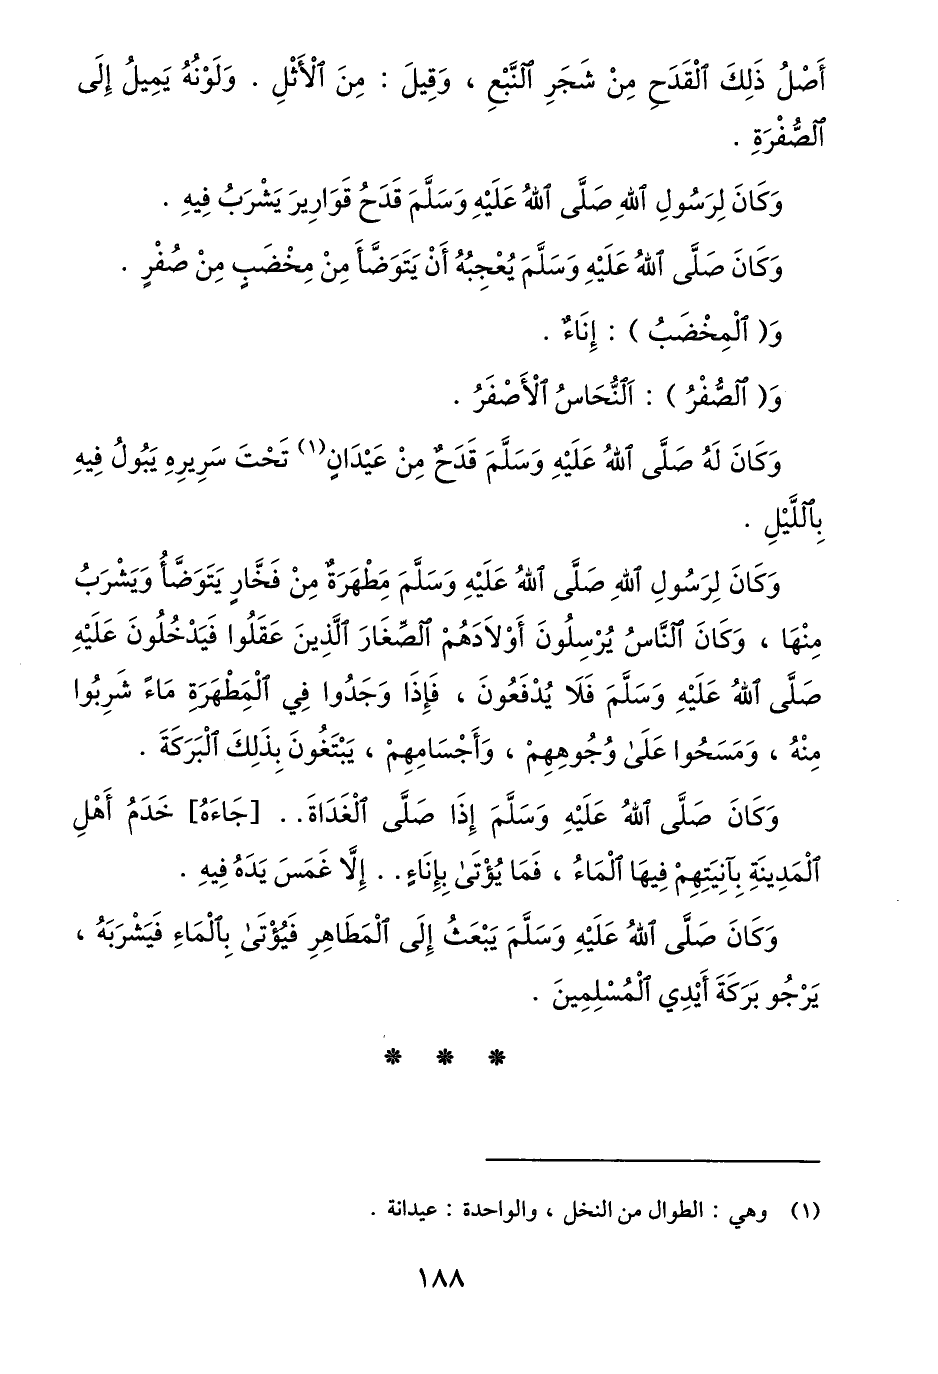 أَصْلُ ذَلِكَ ٱلْقَدَحِ مِنْ شَجَرِ ٱلنَّبْعِ ، وَقِيلَ : مِنَ ٱلْأَثْلِ . وَلَوْنُهُ يَمِيلُ إِلَى
ٱلصُّفْرَةِ .
وَكَانَ لِرَسُولِ ٱللهِ صَلَّى ٱللهُ عَلَيْهِ وَسَلَّمَ قَدَحُ قَوَارِيرَ يَشْرَبُ فِيهِ .
وَكَانَ صَلَّى ٱللهُ عَلَيْهِ وَسَلَّمَ يُعْجِبُهُ أَنْ يَتَوَضَّأَ مِنْ مِخْضَبٍ مِنْ صُفْرٍ .
وَ( ٱلْمِخْضَبُ ) : إِنَاءٌ .
وَ( ٱلصُّفْرُ ) : اَلنُّحَاسُ ٱلْأَصْفَرُ .
وَكَانَ لَهُ صَلَّى ٱللهُ عَلَيْهِ وَسَلَّمَ قَدَحٌ مِنْ عَيْدَانٍ(١) تَحْتَ سَرِيرِهِ يَبُولُ فِيهِ
بِٱللَّيْلِ .
وَكَانَ لِرَسُولِ ٱللهِ صَلَّى ٱللهُ عَلَيْهِ وَسَلَّمَ مَطْهَرَةٌ مِنْ فَخَّارٍ يَتَوَضَّأُ وَيَشْرَبُ
مِنْهَا ، وَكَانَ ٱلنَّاسُ يُرْسِلُونَ أَوْلاَدَهُمْ ٱلصِّغَارَ ٱلَّذِينَ عَقَلُوا فَيَدْخُلُونَ عَلَيْهِ
صَلَّى ٱللهُ عَلَيْهِ وَسَلَّمَ فَلَا يُدْفَعُونَ ، فَإِذَا وَجَدُوا فِي ٱلْمِطْهَرَةِ مَاءً شَرِبُوا
مِنْهُ ، وَمَسَحُوا عَلَىٰ وُجُوهِهِمْ ، وَأَجْسَامِهِمْ ، يَبْتَغُونَ بِذَلِكَ ٱلْبَرَكَةَ .
وَكَانَ صَلَّى ٱللهُ عَلَيْهِ وَسَلَّمَ إِذَا صَلَّى ٱلْغَدَاةَ.. [جَاءَهُ] خَدَمُ أَهْلِ
ٱلْمَدِينَةِ بِآنِيَتِهِمْ فِيهَا ٱلْمَاءُ ، فَمَا يُؤْتَىٰ بِإِنَاءٍ.. إِلَّا غَمَسَ يَدَهُ فِيهِ .
وَكَانَ صَلَّى ٱللهُ عَلَيْهِ وَسَلَّمَ يَبْعَثُ إِلَى ٱلْمَطَاهِرِ فَيُؤْتَىٰ بِٱلْمَاءِ فَيَشْرَبَهُ ،
يَرْجُو بَرَكَةَ أَيْدِي ٱلْمُسْلِمِينَ .
* * *
(١) وهي : الطوال من النخل ، والواحدة : عيدانة .
١٨٨